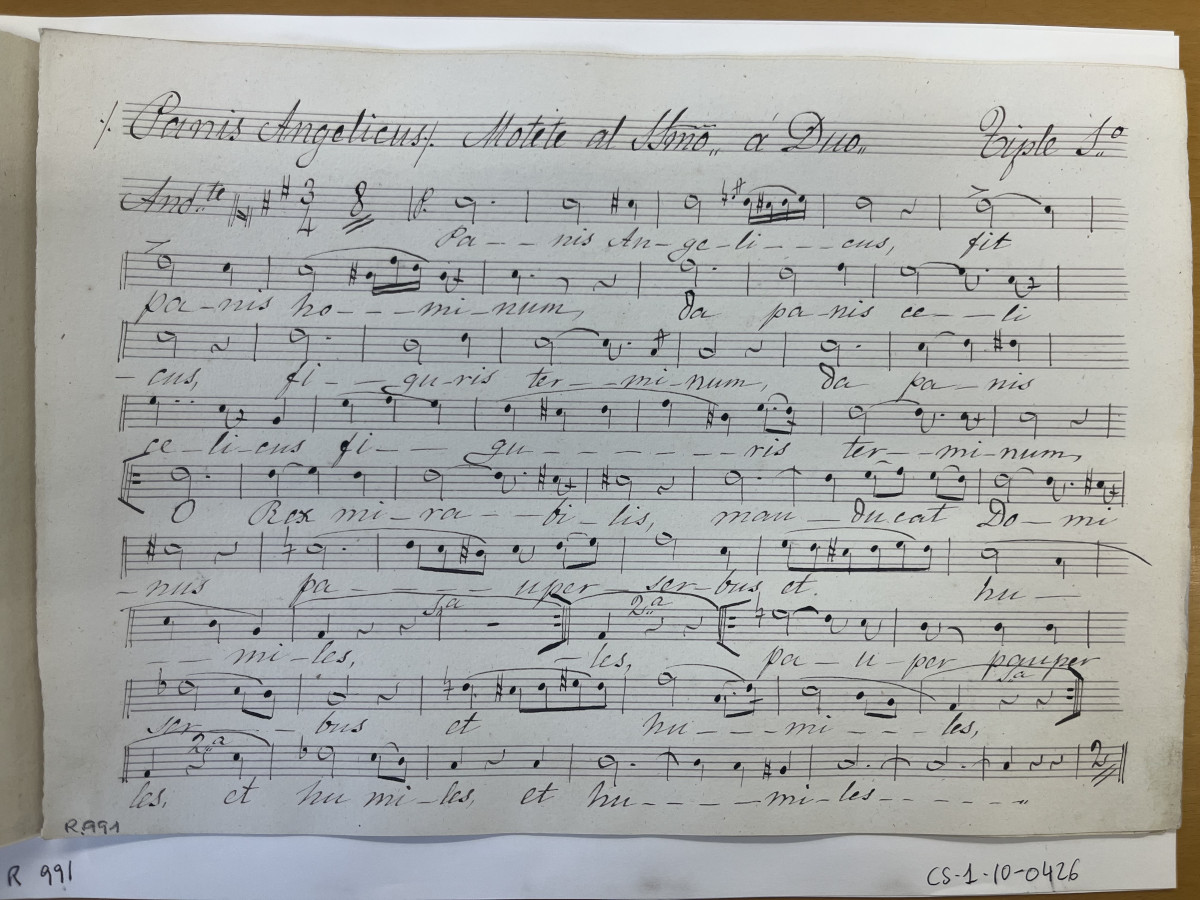 Panis Angelicus Motete al Ssmo á Duo Tiple 1.º
And.te 3/4 8 P.
Pa - - nis An - ge - li - - - cus, fit
pa - nis ho - - - mi - num, da panis ce - - li
- cus, fi - - gu - ris ter - - mi - num, da pa - nis
ce - li - cus fi - - gu - - - - - - - ris ter - - mi - num,
O Rex mi - ra - - bi - lis, man - ducat Do - mi
- nus pa - - - - - uper ser - bus et. hu -
1ª 2ª
- - - mi - les, - les, pa - u - per pauper
1ª
ser - - - bus et hu - - - mi - - - les,
2ª 2
les, et hu mi - les, et hu - - - - mi - les - - - - - -
R.991
R 991 CS-1-10-0426